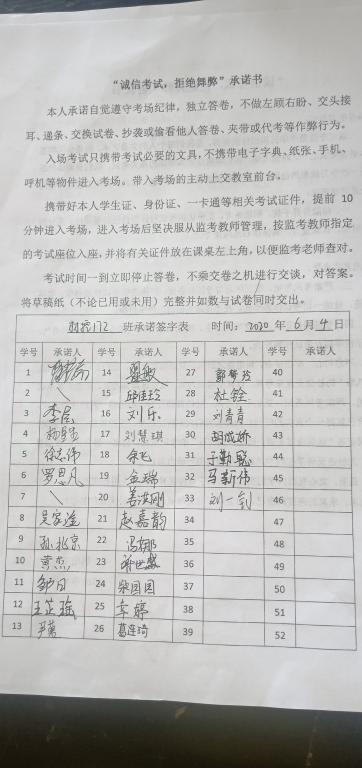 “诚信考试，拒绝舞弊”承诺书
本人承诺自觉遵守考场纪律，独立答卷，不做左顾右盼、交头接
耳、递条、交换试卷、抄袭或偷看他人答卷、夹带或代考等作弊行为。
入场考试只携带考试必要的文具，不携带电子字典、纸张、手机、
呼机等物件进入考场。带入考场的主动上交教室前台。
携带好本人学生证、身份证、一卡通等相关考试证件，提前 10
分钟进入考场，进入考场后坚决服从监考教师管理，按监考教师指定
的考试座位入座，并将有关证件放在课桌左上角，以便监考老师查对。
考试时间一到立即停止答卷，不乘交卷之机进行交谈，对答案。
将草稿纸（不论已用或未用）完整并如数与试卷同时交出。
172 班承诺签字表 时间：2020 年 6 月 4 日
学号 承诺人 学号 承诺人 学号 承诺人 学号 承诺人
1 14 27 郭梦玲 40
2 \ 15 邱佳玲 28 杜铨 41
3 李居 16 刘乐 29 刘青青 42
4 17 刘慧琪 30 胡成娇 43
5 徐志伟 18 徐飞 31 于勤聪 44
6 罗思凡 19 金瑞 32 马新伟 45
7 \ 20 姜洪刚 33 刘一剑 46
8 吴家滢 21 赵嘉韵 34 47
9 孙北京 22 冯娜 35 48
10 黄杰 23 36 49
11 邹日 24 柴团团 37 50
12 王芷瑶 25 车婷 38 51
13 尹萬 26 葛连琦 39 52